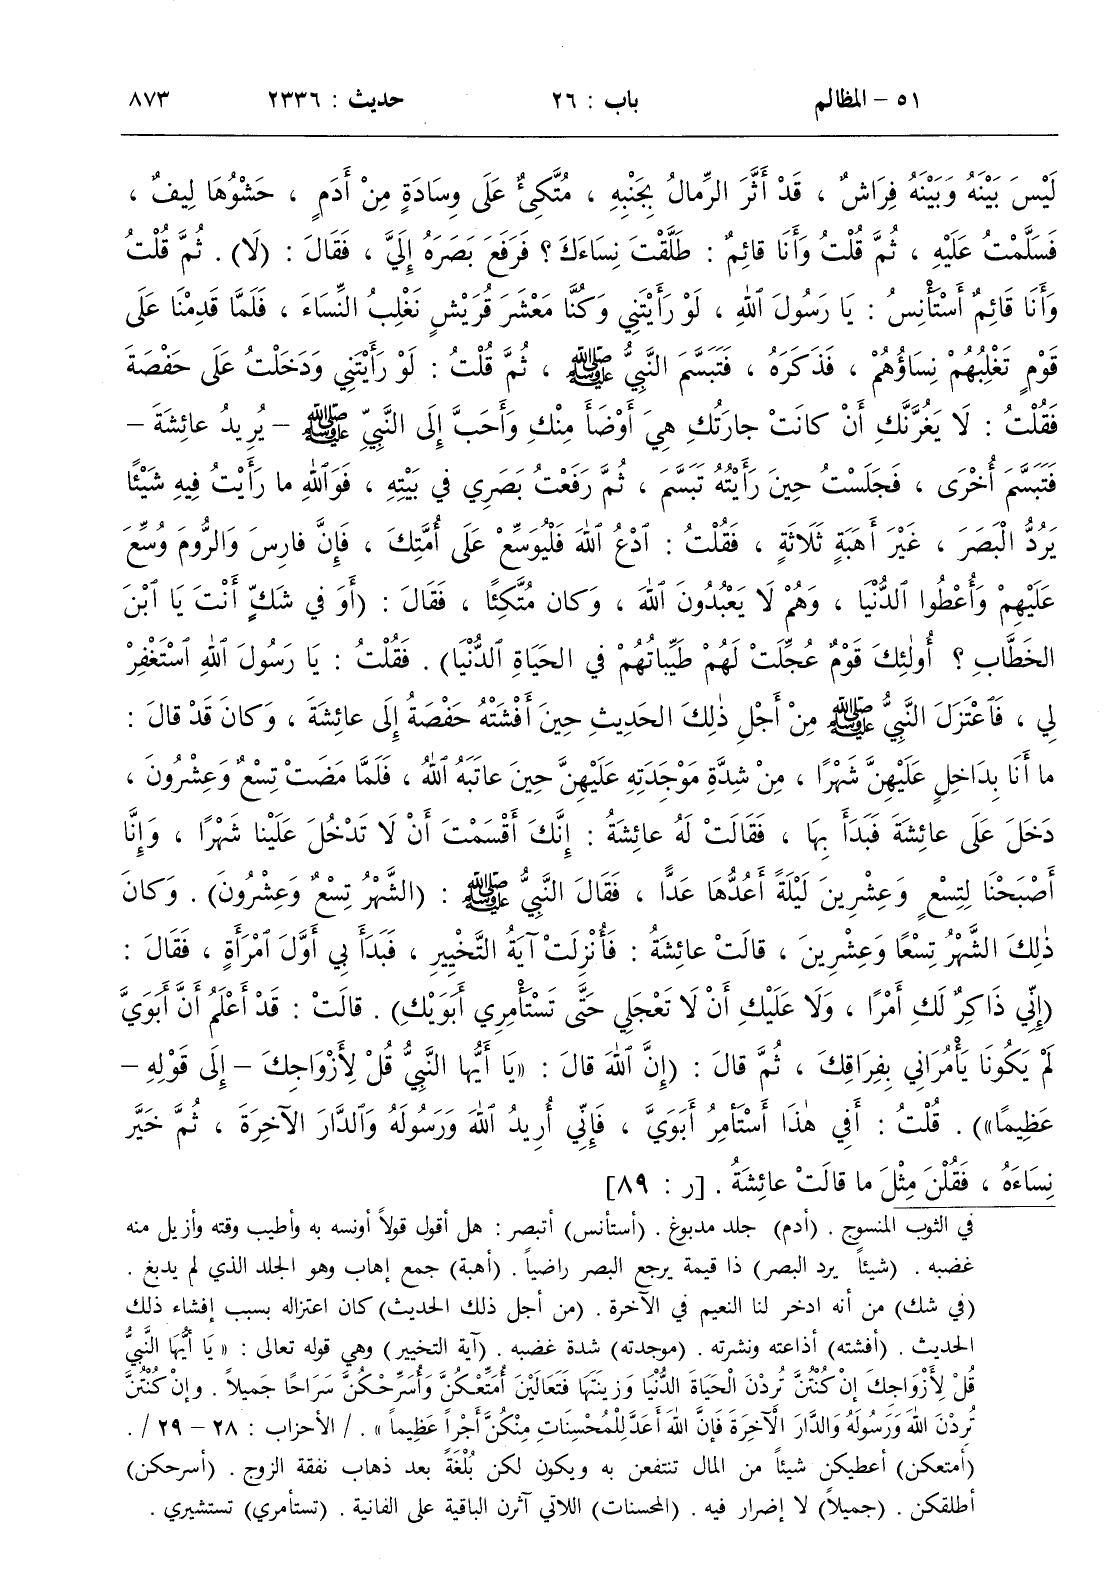 ٥١ - المظالم باب : ٢٦ حديث : ٢٣٣٦ ٨٧٣
لَيْسَ بَيْنَهُ وَبَيْنَهُ فِرَاشٌ ، قَدْ أَثَّرَ الرِّمالُ بِجَنْبِهِ ، مُتَّكِئٌ عَلَى وِسَادَةٍ مِنْ أَدَمٍ ، حَشْوُهَا لِيفٌ ،
فَسَلَّمْتُ عَلَيْهِ ، ثُمَّ قُلْتُ وَأَنَا قائِمٌ : طَلَّقْتَ نِسَاءَكَ ؟ فَرَفَعَ بَصَرَهُ إِلَيَّ ، فَقَالَ : (لَا) . ثُمَّ قُلْتُ
وَأَنَا قَائِمٌ أَسْتَأْنِسُ : يَا رَسُولَ ٱللهِ ، لَوْ رَأَيْتَنِي وَكُنَّا مَعْشَرَ قُرَيْشٍ نَغْلِبُ النِّسَاءَ ، فَلَمَّا قَدِمْنَا عَلَى
قَوْمٍ تَغْلِبُهُمْ نِسَاؤُهُمْ ، فَذَكَرَهُ ، فَتَبَسَّمَ النَّبِيُّ ﷺ ، ثُمَّ قُلْتُ : لَوْ رَأَيْتَنِي وَدَخَلْتُ عَلَى حَفْصَةَ
فَقُلْتُ : لَا يَغُرَّنَّكِ أَنْ كانَتْ جارَتُكِ هِيَ أَوْضَأَ مِنْكِ وَأَحَبَّ إِلَى النَّبِيِّ ﷺ - يُرِيدُ عائِشَةَ -
فَتَبَسَّمَ أُخْرَى ، فَجَلَسْتُ حِينَ رَأَيْتُهُ تَبَسَّمَ ، ثُمَّ رَفَعْتُ بَصَرِي في بَيْتِهِ ، فَوَٱللهِ ما رَأَيْتُ فِيهِ شَيْئًا
يَرُدُّ الْبَصَرَ ، غَيْرَ أَهَبَةٍ ثَلَاثَةٍ ، فَقُلْتُ : ٱدْعُ ٱللهَ فَلْيُوَسِّعْ عَلَى أُمَّتِكَ ، فَإِنَّ فارِسَ وَالرُّومَ وُسِّعَ
عَلَيْهِمْ وَأُعْطُوا ٱلدُّنْيَا ، وَهُمْ لَا يَعْبُدُونَ ٱللهَ ، وَكانَ مُتَّكِئًا ، فَقَالَ : (أَوَ في شَكٍّ أَنْتَ يَا ٱبْنَ
الخَطَّابِ ؟ أُولٰئِكَ قَوْمٌ عُجِّلَتْ لَهُمْ طَيِّبَاتُهُمْ في الحَيَاةِ ٱلدُّنْيَا) . فَقُلْتُ : يَا رَسُولَ ٱللهِ ٱسْتَغْفِرْ
لِي ، فَٱعْتَزَلَ النَّبِيُّ ﷺ مِنْ أَجْلِ ذٰلِكَ الحَدِيثِ حِينَ أَفْشَتْهُ حَفْصَةُ إِلَى عائِشَةَ ، وَكانَ قَدْ قالَ :
ما أَنَا بِدَاخِلٍ عَلَيْهِنَّ شَهْرًا ، مِنْ شِدَّةِ مَوْجَدَتِهِ عَلَيْهِنَّ حِينَ عاتَبَهُ ٱللهُ ، فَلَمَّا مَضَتْ تِسْعٌ وَعِشْرُونَ ،
دَخَلَ عَلَى عائِشَةَ فَبَدَأَ بِهَا ، فَقَالَتْ لَهُ عائِشَةُ : إِنَّكَ أَقْسَمْتَ أَنْ لَا تَدْخُلَ عَلَيْنا شَهْرًا ، وَإِنَّا
أَصْبَحْنَا لِتِسْعٍ وَعِشْرِينَ لَيْلَةً أَعُدُّهَا عَدًّا ، فَقَالَ النَّبِيُّ ﷺ : (الشَّهْرُ تِسْعٌ وَعِشْرُونَ) . وَكانَ
ذٰلِكَ الشَّهْرُ تِسْعًا وَعِشْرِينَ ، قالَتْ عائِشَةُ : فَأُنْزِلَتْ آيَةُ التَّخْيِيرِ ، فَبَدَأَ بِي أَوَّلَ ٱمْرَأَةٍ ، فَقَالَ :
(إِنِّي ذَاكِرٌ لَكِ أَمْرًا ، وَلَا عَلَيْكِ أَنْ لَا تَعْجَلِي حَتَّى تَسْتَأْمِرِي أَبَوَيْكِ) . قالَتْ : قَدْ أَعْلَمُ أَنَّ أَبَوَيَّ
لَمْ يَكُونَا يَأْمُرَانِي بِفِرَاقِكَ ، ثُمَّ قالَ : (إِنَّ ٱللهَ قالَ : «يَا أَيُّها النَّبِيُّ قُلْ لِأَزْوَاجِكَ - إِلَى قَوْلِهِ -
عَظِيمًا») . قُلْتُ : أَفِي هٰذَا أَسْتَأْمِرُ أَبَوَيَّ ، فَإِنِّي أُرِيدُ ٱللهَ وَرَسُولَهُ وَٱلدَّارَ الآخِرَةَ ، ثُمَّ خَيَّرَ
نِسَاءَهُ ، فَقُلْنَ مِثْلَ ما قالَتْ عائِشَةُ . [ر : ٨٩]
في الثوب المنسوج . (أدم) جلد مدبوغ . (أستأنس) أتبصر : هل أقول قولاً أونسه به وأطيب وقته وأزيل منه
غضبه . (شيئاً يرد البصر) ذا قيمة يرجع البصر راضياً . (أهبة) جمع إهاب وهو الجلد الذي لم يدبغ .
(في شك) من أنه ادخر لنا النعيم في الآخرة . (من أجل ذلك الحديث) كان اعتزاله بسبب إفشاء ذلك
الحديث . (أفشته) أذاعته ونشرته . (موجدته) شدة غضبه . (آية التخيير) وهي قوله تعالى : « يَا أَيُّهَا النَّبِيُّ
قُلْ لِأَزْوَاجِكَ إِنْ كُنْتُنَّ تُرِدْنَ الْحَيَاةَ الدُّنْيَا وَزِينَتَهَا فَتَعَالَيْنَ أُمَتِّعْكُنَّ وَأُسَرِّحْكُنَّ سَرَاحًا جَمِيلاً . وَإِنْ كُنْتُنَّ
تُرِدْنَ اللهَ وَرَسُولَهُ وَالدَّارَ الْآخِرَةَ فَإِنَّ اللهَ أَعَدَّ لِلْمُحْسِنَاتِ مِنْكُنَّ أَجْراً عَظِيماً » . / الأحزاب : ٢٨ - ٢٩ / .
(أمتعكن) أعطيكن شيئاً من المال تنتفعن به ويكون لكن بُلْغَةً بعد ذهاب نفقة الزوج . (أسرحكن)
أطلقكن . (جميلاً) لا إضرار فيه . (المحسنات) اللاتي آثرن الباقية على الفانية . (تستأمري) تستشيري .